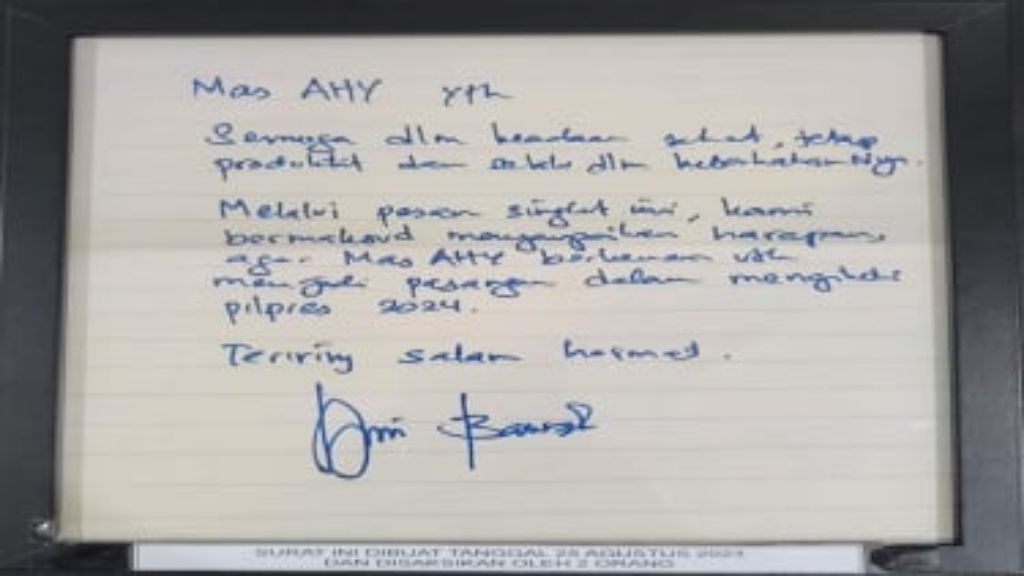 Mas AHY yth
Semoga dlm keadaan sehat, tetap
produktif dan selalu dlm kebahahanNya.
Melalui pesan singkat ini, kami
bermaksud menyampaikan harapan,
agar Mas AHY berkenan utk
menjadi pasangan dalam mengikuti
pilpres 2024.
Teriring salam hormat.
SURAT INI DIBUAT TANGGAL 25 AGUSTUS 2023
DAN DISAKSIKAN OLEH 2 ORANG